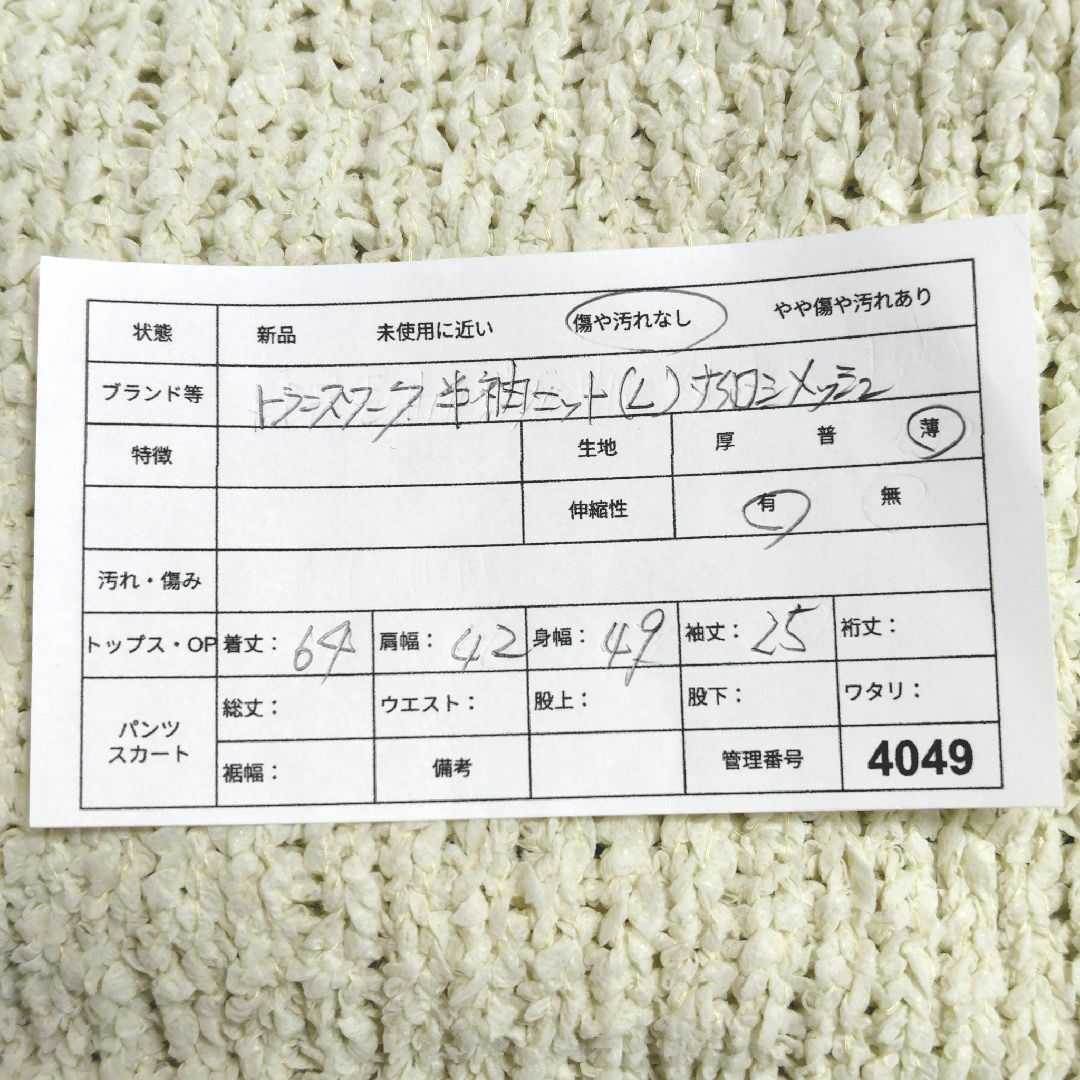 状態 新品 未使用に近い 傷や汚れなし やや傷や汚れあり
ブランド等 トランスワーク 半袖ニット(L) ナイロンメッシュ
特徴 生地 厚 普 薄
伸縮性 有 無
汚れ・傷み
トップス・OP 着丈: 64 肩幅: 42 身幅: 49 袖丈: 25 裄丈:
パンツ スカート 総丈: ウエスト: 股上: 股下: ワタリ:
裾幅: 備考 管理番号 4049